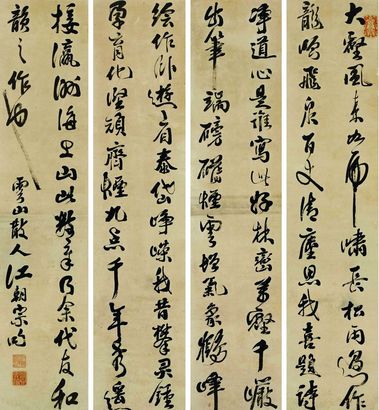 大壑風來如虎嘯長松雨過作
龍吟飛泉百丈清塵思我喜題詩
净道心是誰寫此好林巒萬壑千巖
出筆端磅礴煙雲增氣象鶴峰
繪作卧遊看泰岱崢嶸我昔攀靈鍾
育化堅頑齊煙九點千年秀遥
接瀛洲海上山此數年乃余代友和
韻之作也 雲山散人江朝宗